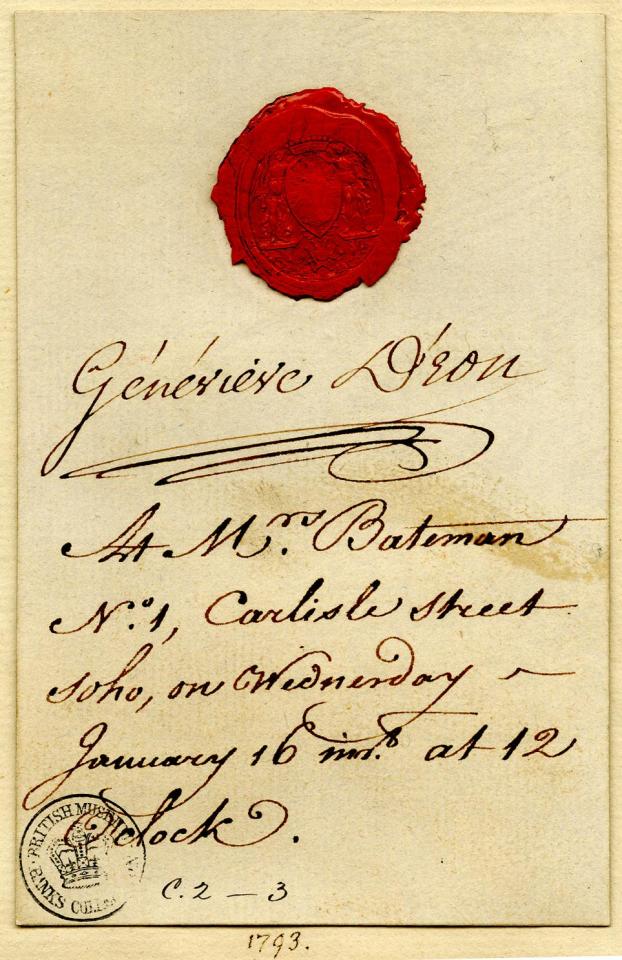 Généviéve D'éon
At Mrs. Bateman
No. 1, Carlisle street
soho, on Wednesday
January 16 inst. at 12
O'clock.
BRITISH MUSEUM
BANKS COLL
C. 2 — 3
1793.